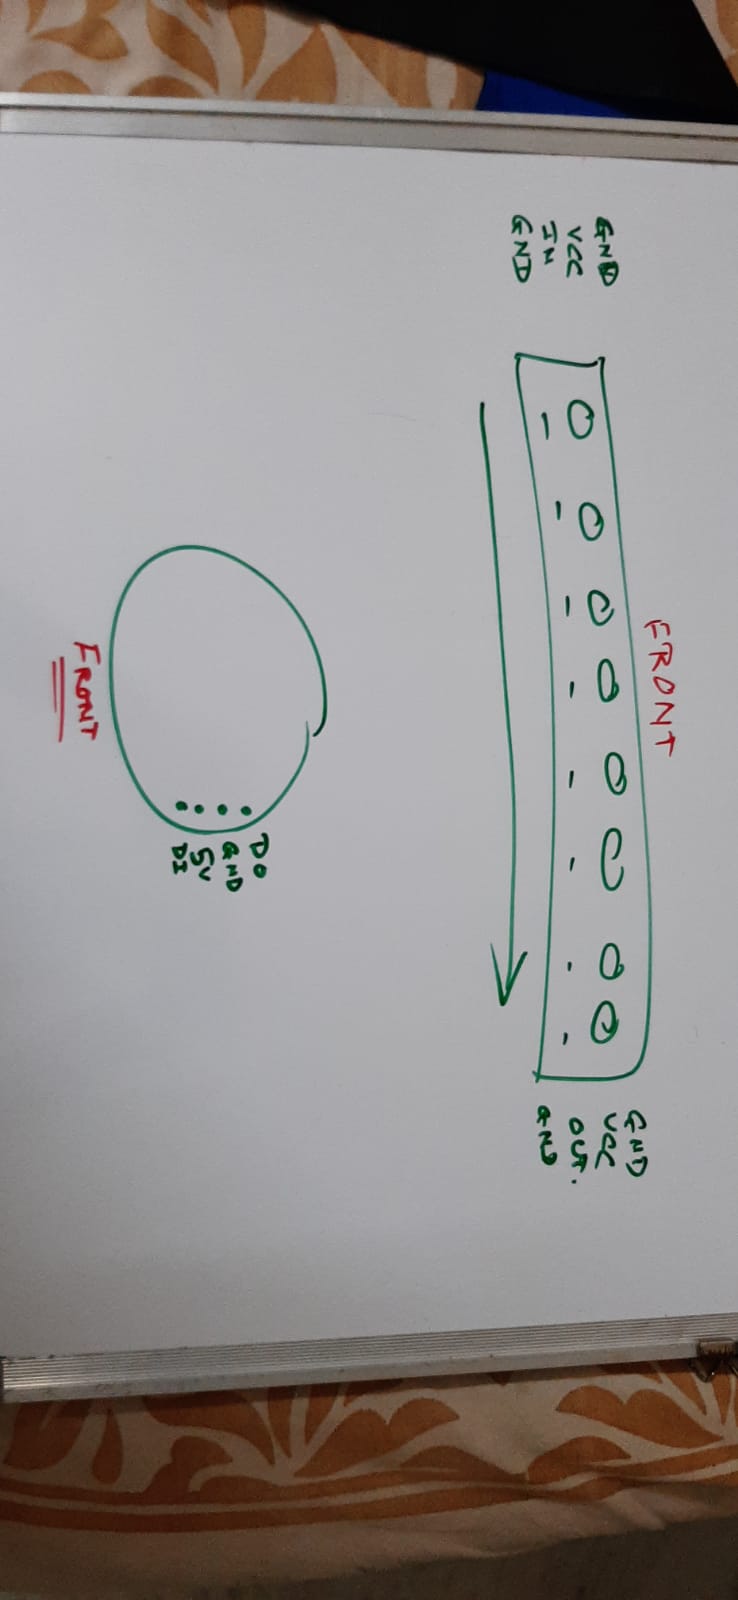 FRONT
GND
VCC
IN
GND
GND
VCC
OUT.
GND
DO
GND
5V
DI
FRONT